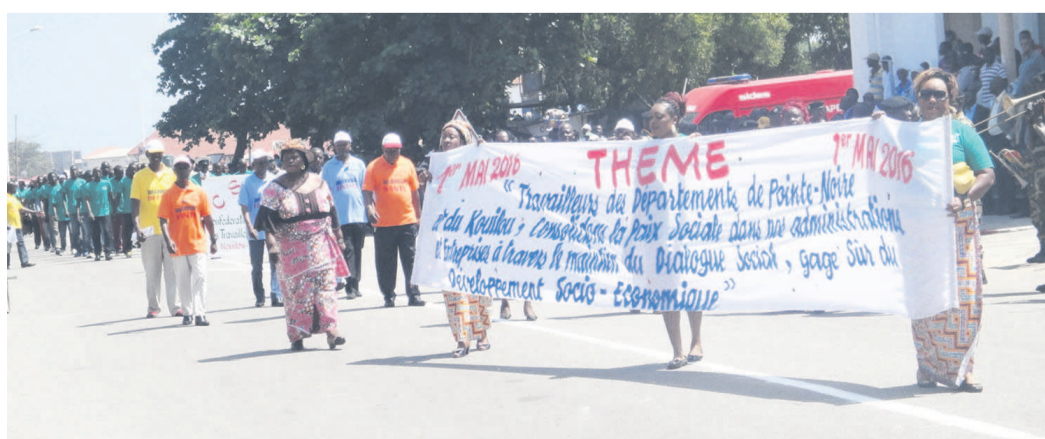 1er MAI 2016 THEME 1er MAI 2016
"Travailleurs des Départements de Pointe-Noire
et du Kouilou; Consolidons la Paix Sociale dans nos administrations
et Entreprises à travers le maintien du Dialogue Social, gage Sûr du
Développement Socio-Economique"